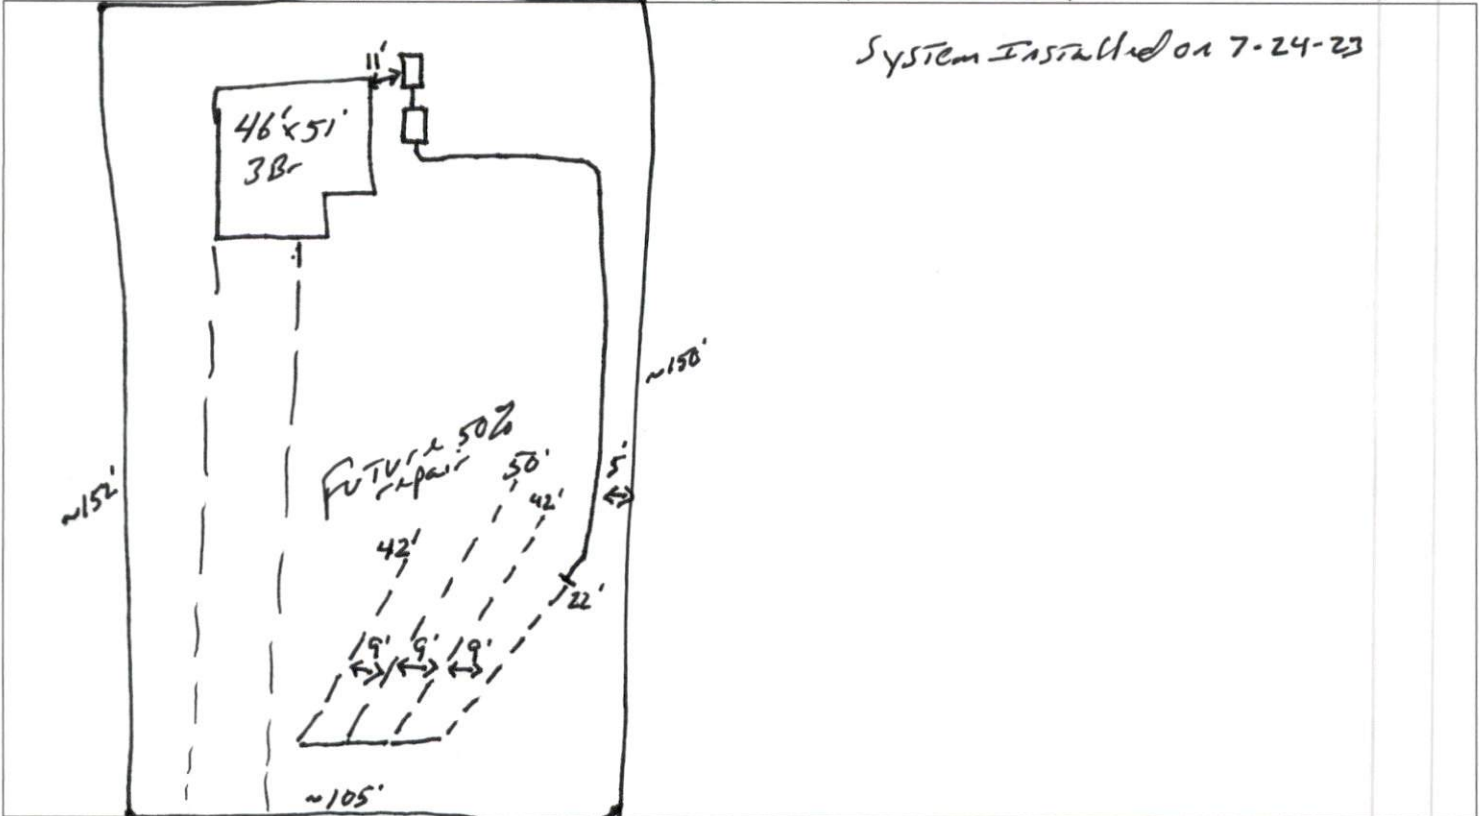 System Installed on 7-24-23
11'
46'x51'
3Br
~150'
Future 50%
repair
50'
5'
42'
~152'
42'
22'
9' 9' 9'
~105'